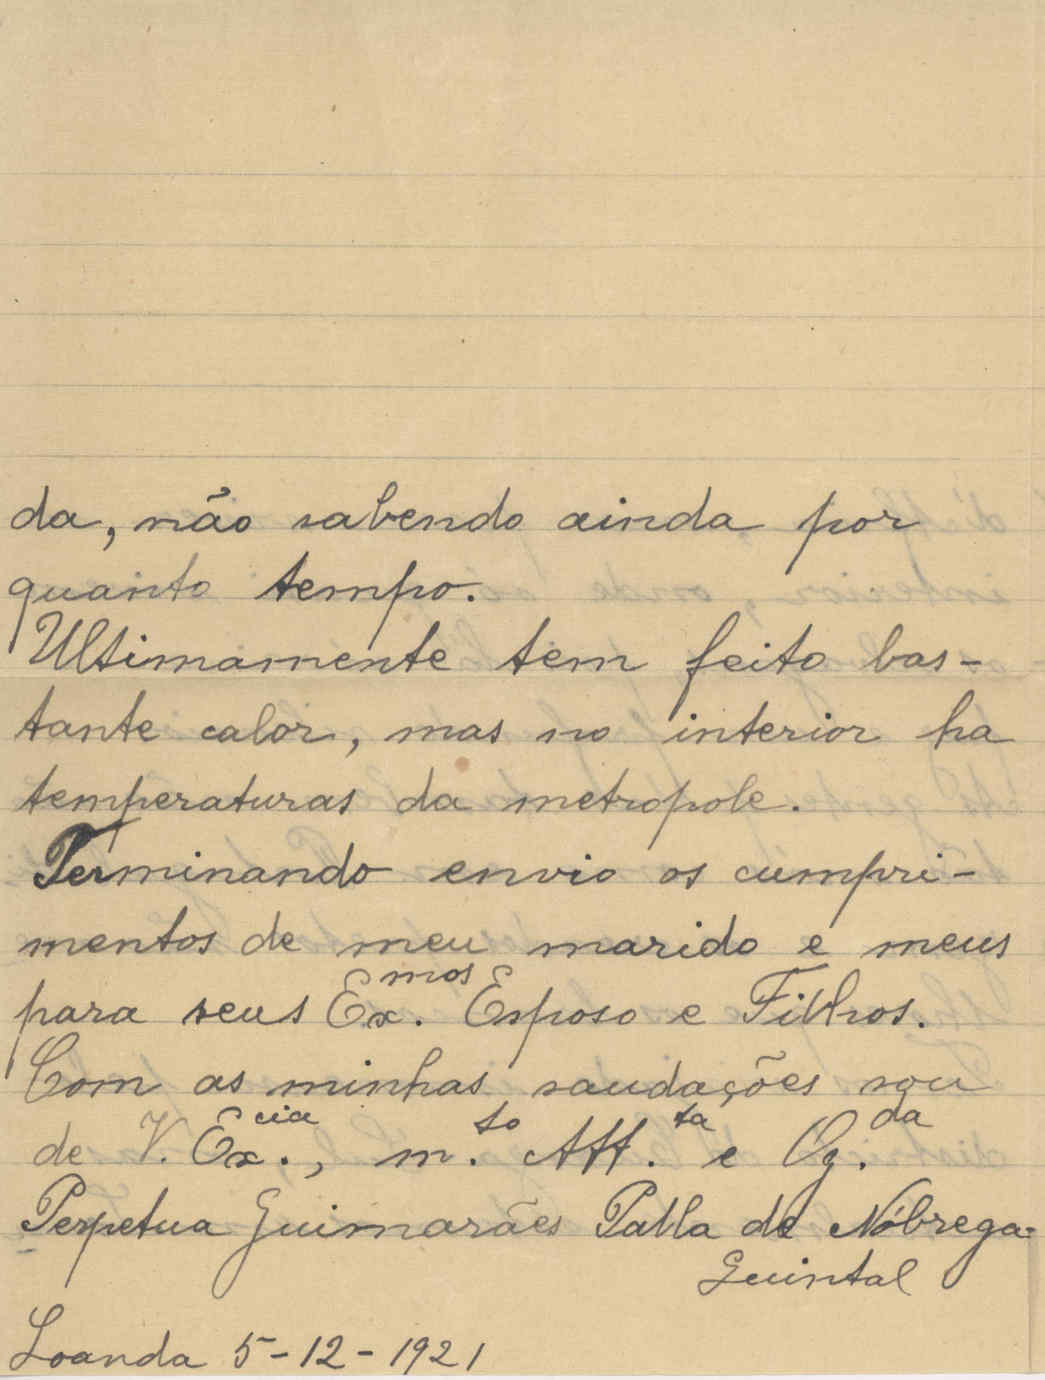 da, não sabendo ainda por
quanto tempo.
Ultimamente tem feito bas-
tante calor, mas no interior ha
temperaturas da metropole.
Terminando envio os cumpri-
mentos de meu marido e meus
para seus Ex.mos Esposo e Filhos.
Com as minhas saudações sou
de V. Ex.cia, m.to Att.ta e Og.da
Perpetua Guimarães Palla de Nóbrega
Quintal
Loanda 5-12-1921